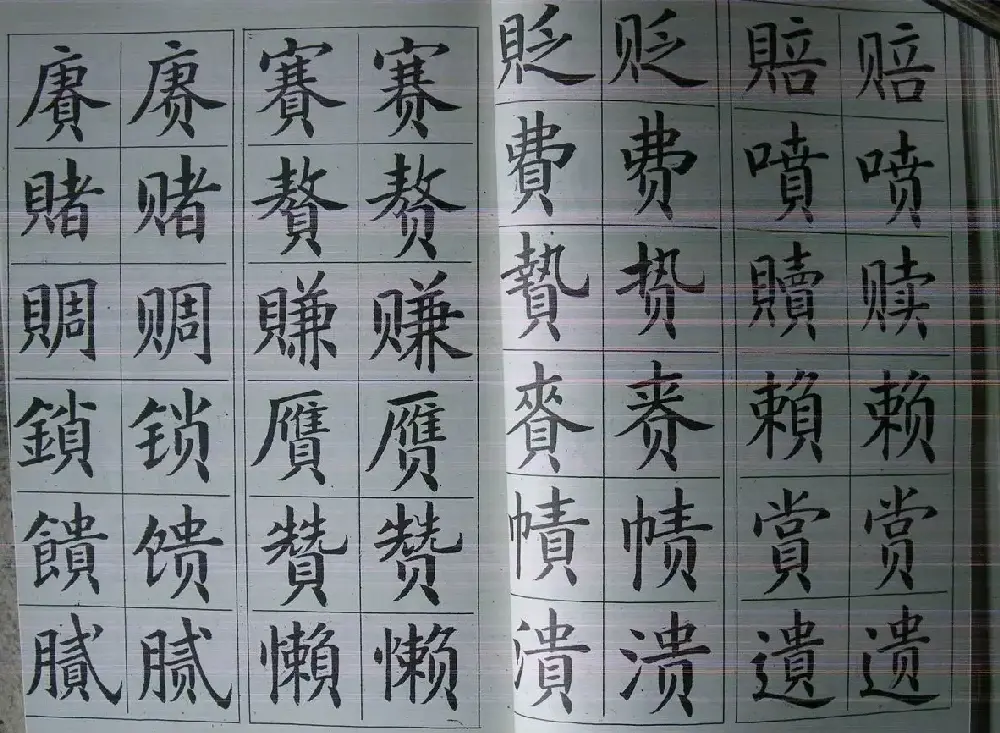 賡 赓 賽 赛 貶 贬 賠 赔
賭 赌 贅 赘 費 费 噴 喷
賙 赒 賺 赚 贄 贽 贖 赎
鎖 锁 贋 赝 賚 赉 賴 赖
饋 馈 贊 赞 幘 帻 賞 赏
膩 腻 懶 懒 潰 溃 遺 遗